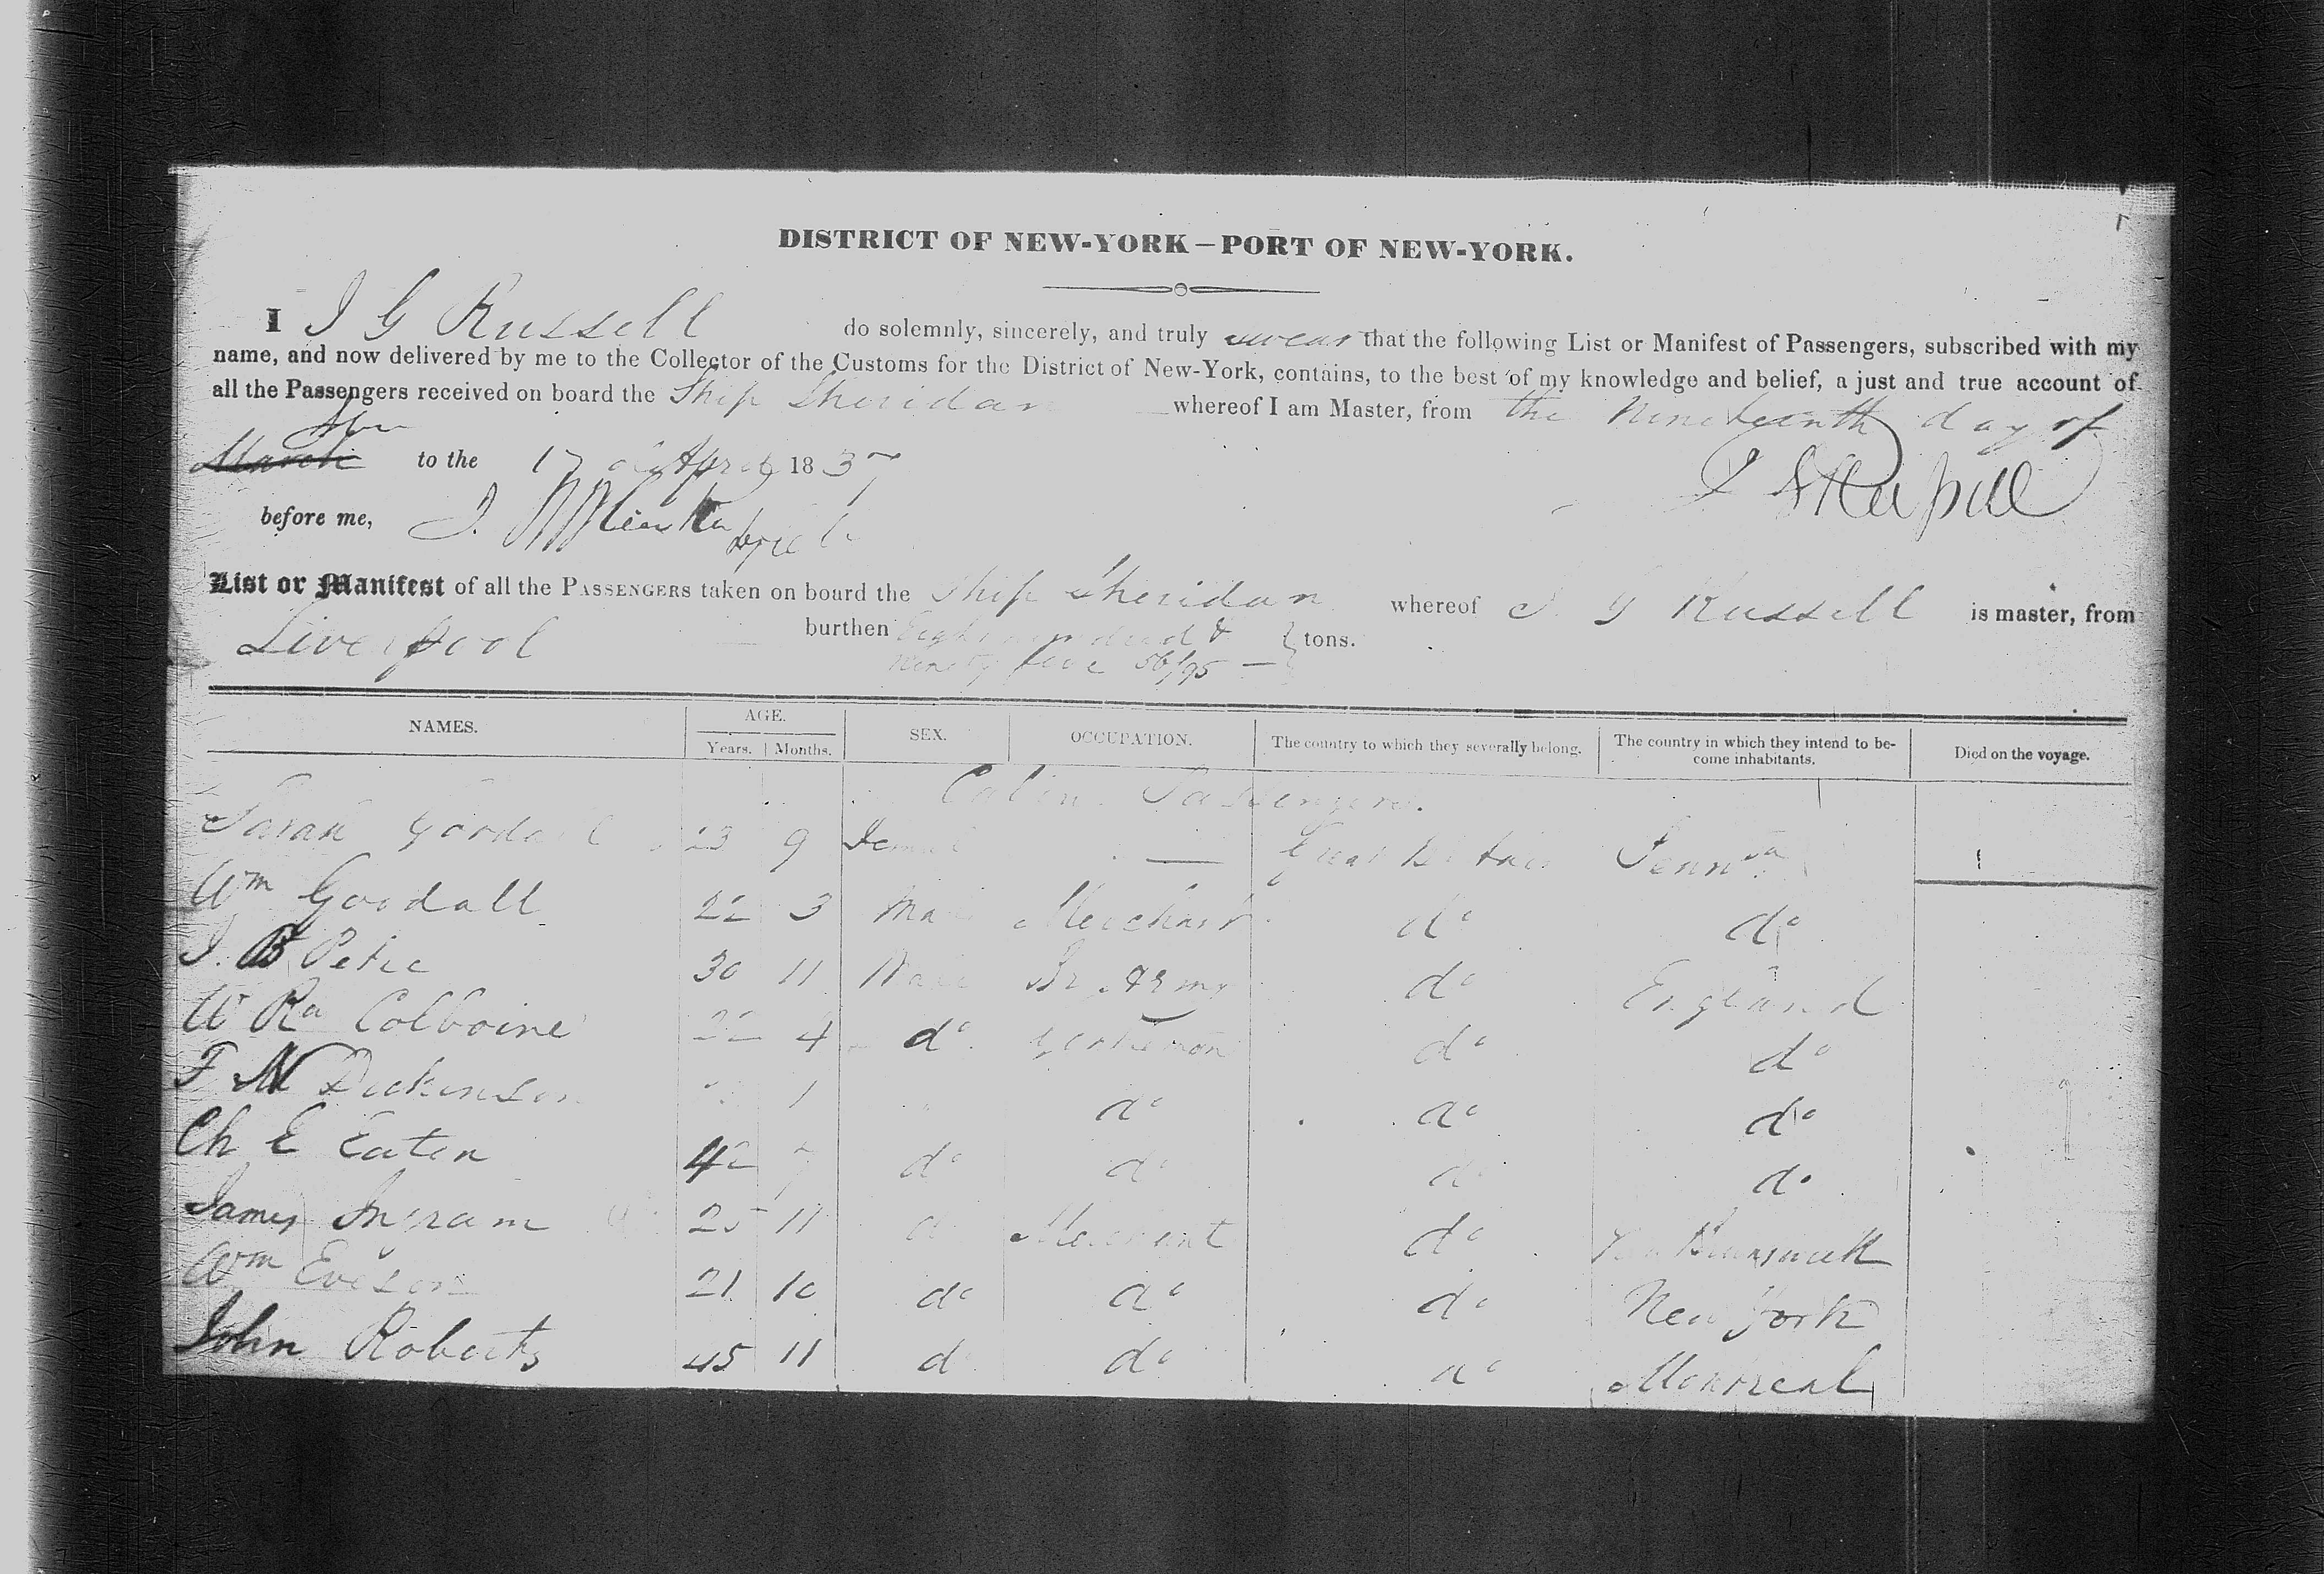 DISTRICT OF NEW-YORK—PORT OF NEW-YORK.
I J G Russell do solemnly, sincerely, and truly swear that the following List or Manifest of Passengers, subscribed with my
name, and now delivered by me to the Collector of the Customs for the District of New-York, contains, to the best of my knowledge and belief, a just and true account of
all the Passengers received on board the Ship Sheridan whereof I am Master, from the Nineteenth day of
March to the 17 April 1837
before me,
List or Manifest of all the PASSENGERS taken on board the Ship Sheridan whereof J G Russell is master, from
Liverpool burthen Eight hundred & tons.
Ninety five 56/95
NAMES. AGE. Years. Months. SEX. OCCUPATION. The country to which they severally belong. The country in which they intend to become inhabitants. Died on the voyage.
Cabin Passengers.
Sarah Goodall 23 9 Female — Great Britain Penn
Wm Goodall 22 3 Male Merchant do do
J. B Petre 30 11 Male Br Army do England
W Ra Colboine 22 4 do Gentleman do do
F M Dickinson 1 do do do
Ch E Eaten 42 7 do do do do
James Ingram 25 11 do Merchant do Brunswick
Wm Eveson 21 10 do do do New York
John Roberts 45 11 do do do Montreal